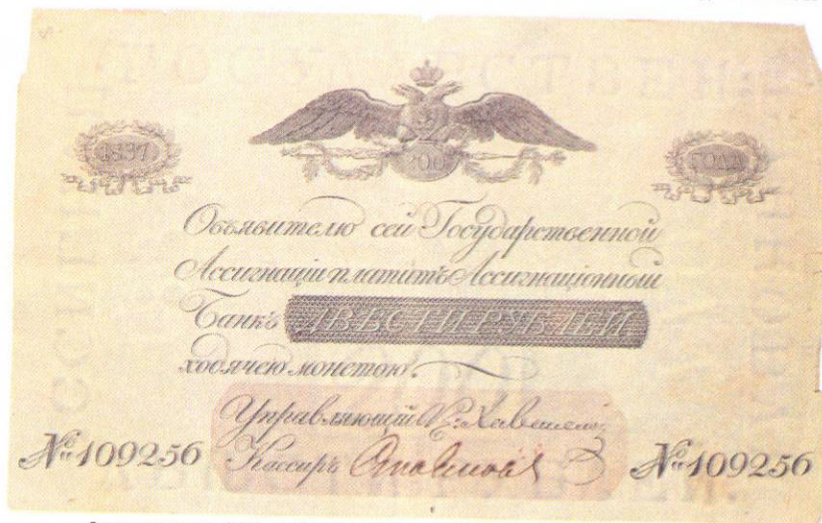 1837
200
ГОДА
Объявителю сей Государственной
Ассигнаціи платитъ Ассигнаціонный
Банкъ ДВѢСТИ РУБЛЕЙ
ходячею монетою.
Управляющій
Кассиръ
№109256
№109256